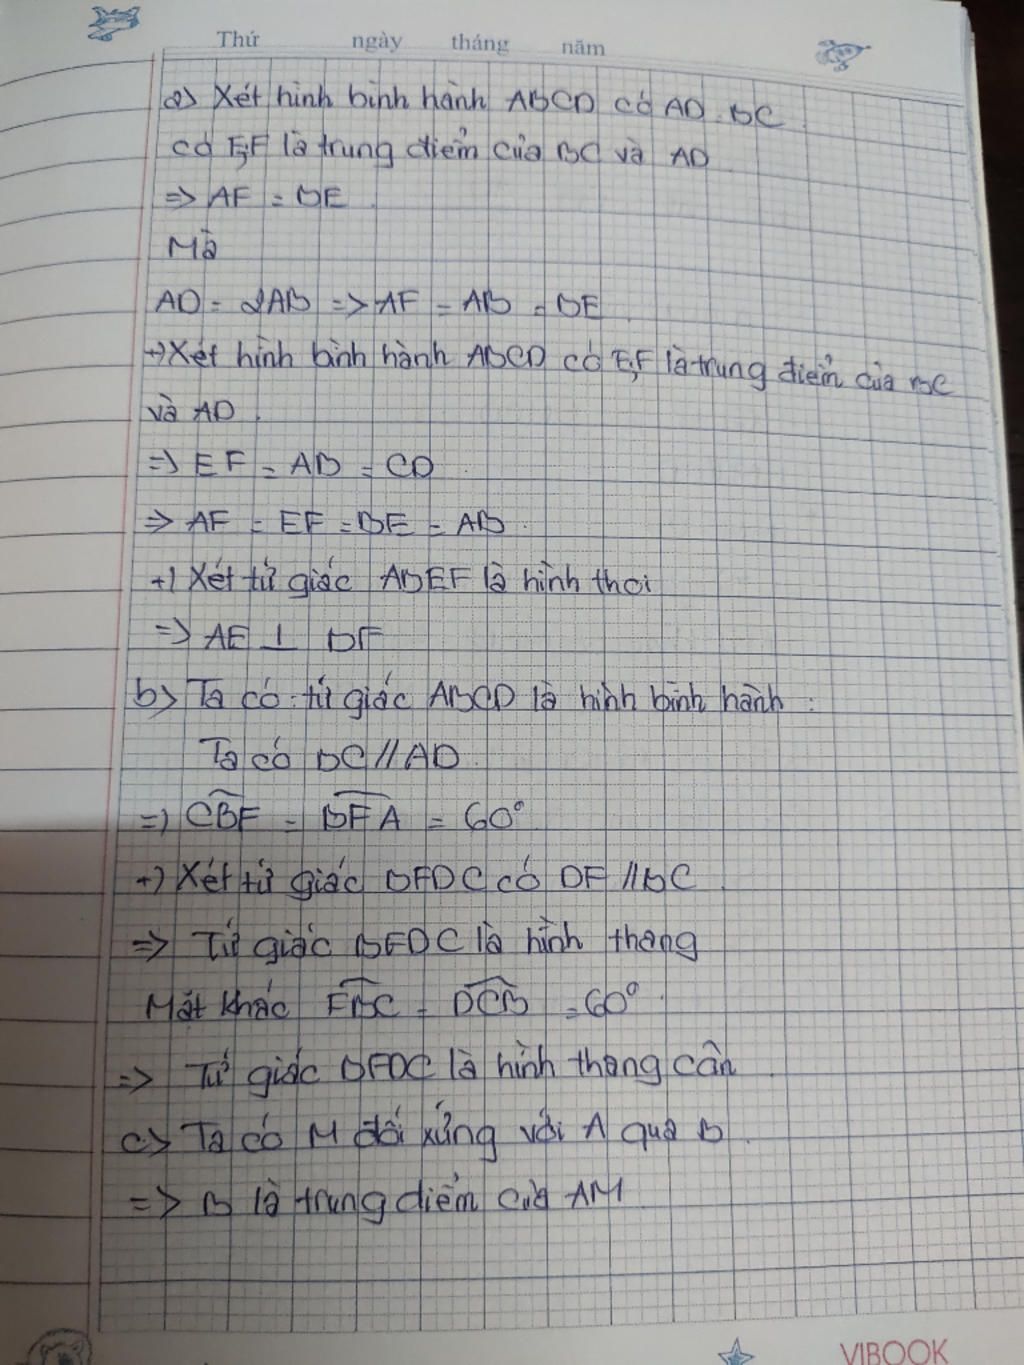 Thứ ngày tháng năm
a) Xét hình bình hành ABCD có AD = BC
có E,F là trung điểm của BC và AD
=> AF = BE
Mà
AD = 2AB => AF = AB = BE
+) Xét hình bình hành ABCD có E,F là trung điểm của BC
và AD.
=> EF = AB = CD
=> AF = EF = BE = AB.
+) Xét tứ giác ABEF là hình thoi
=> AE ⊥ BF
b) Ta có tứ giác ABCD là hình bình hành:
Ta có BC // AD
=> CBF = BFA = 60°
+) Xét tứ giác BFDC có DF // BC
=> Tứ giác BFDC là hình thang
Mặt khác FBC = DCB = 60°.
=> Tứ giác BFDC là hình thang cân
c) Ta có M đối xứng với A qua B
=> B là trung điểm của AM
VIBOOK